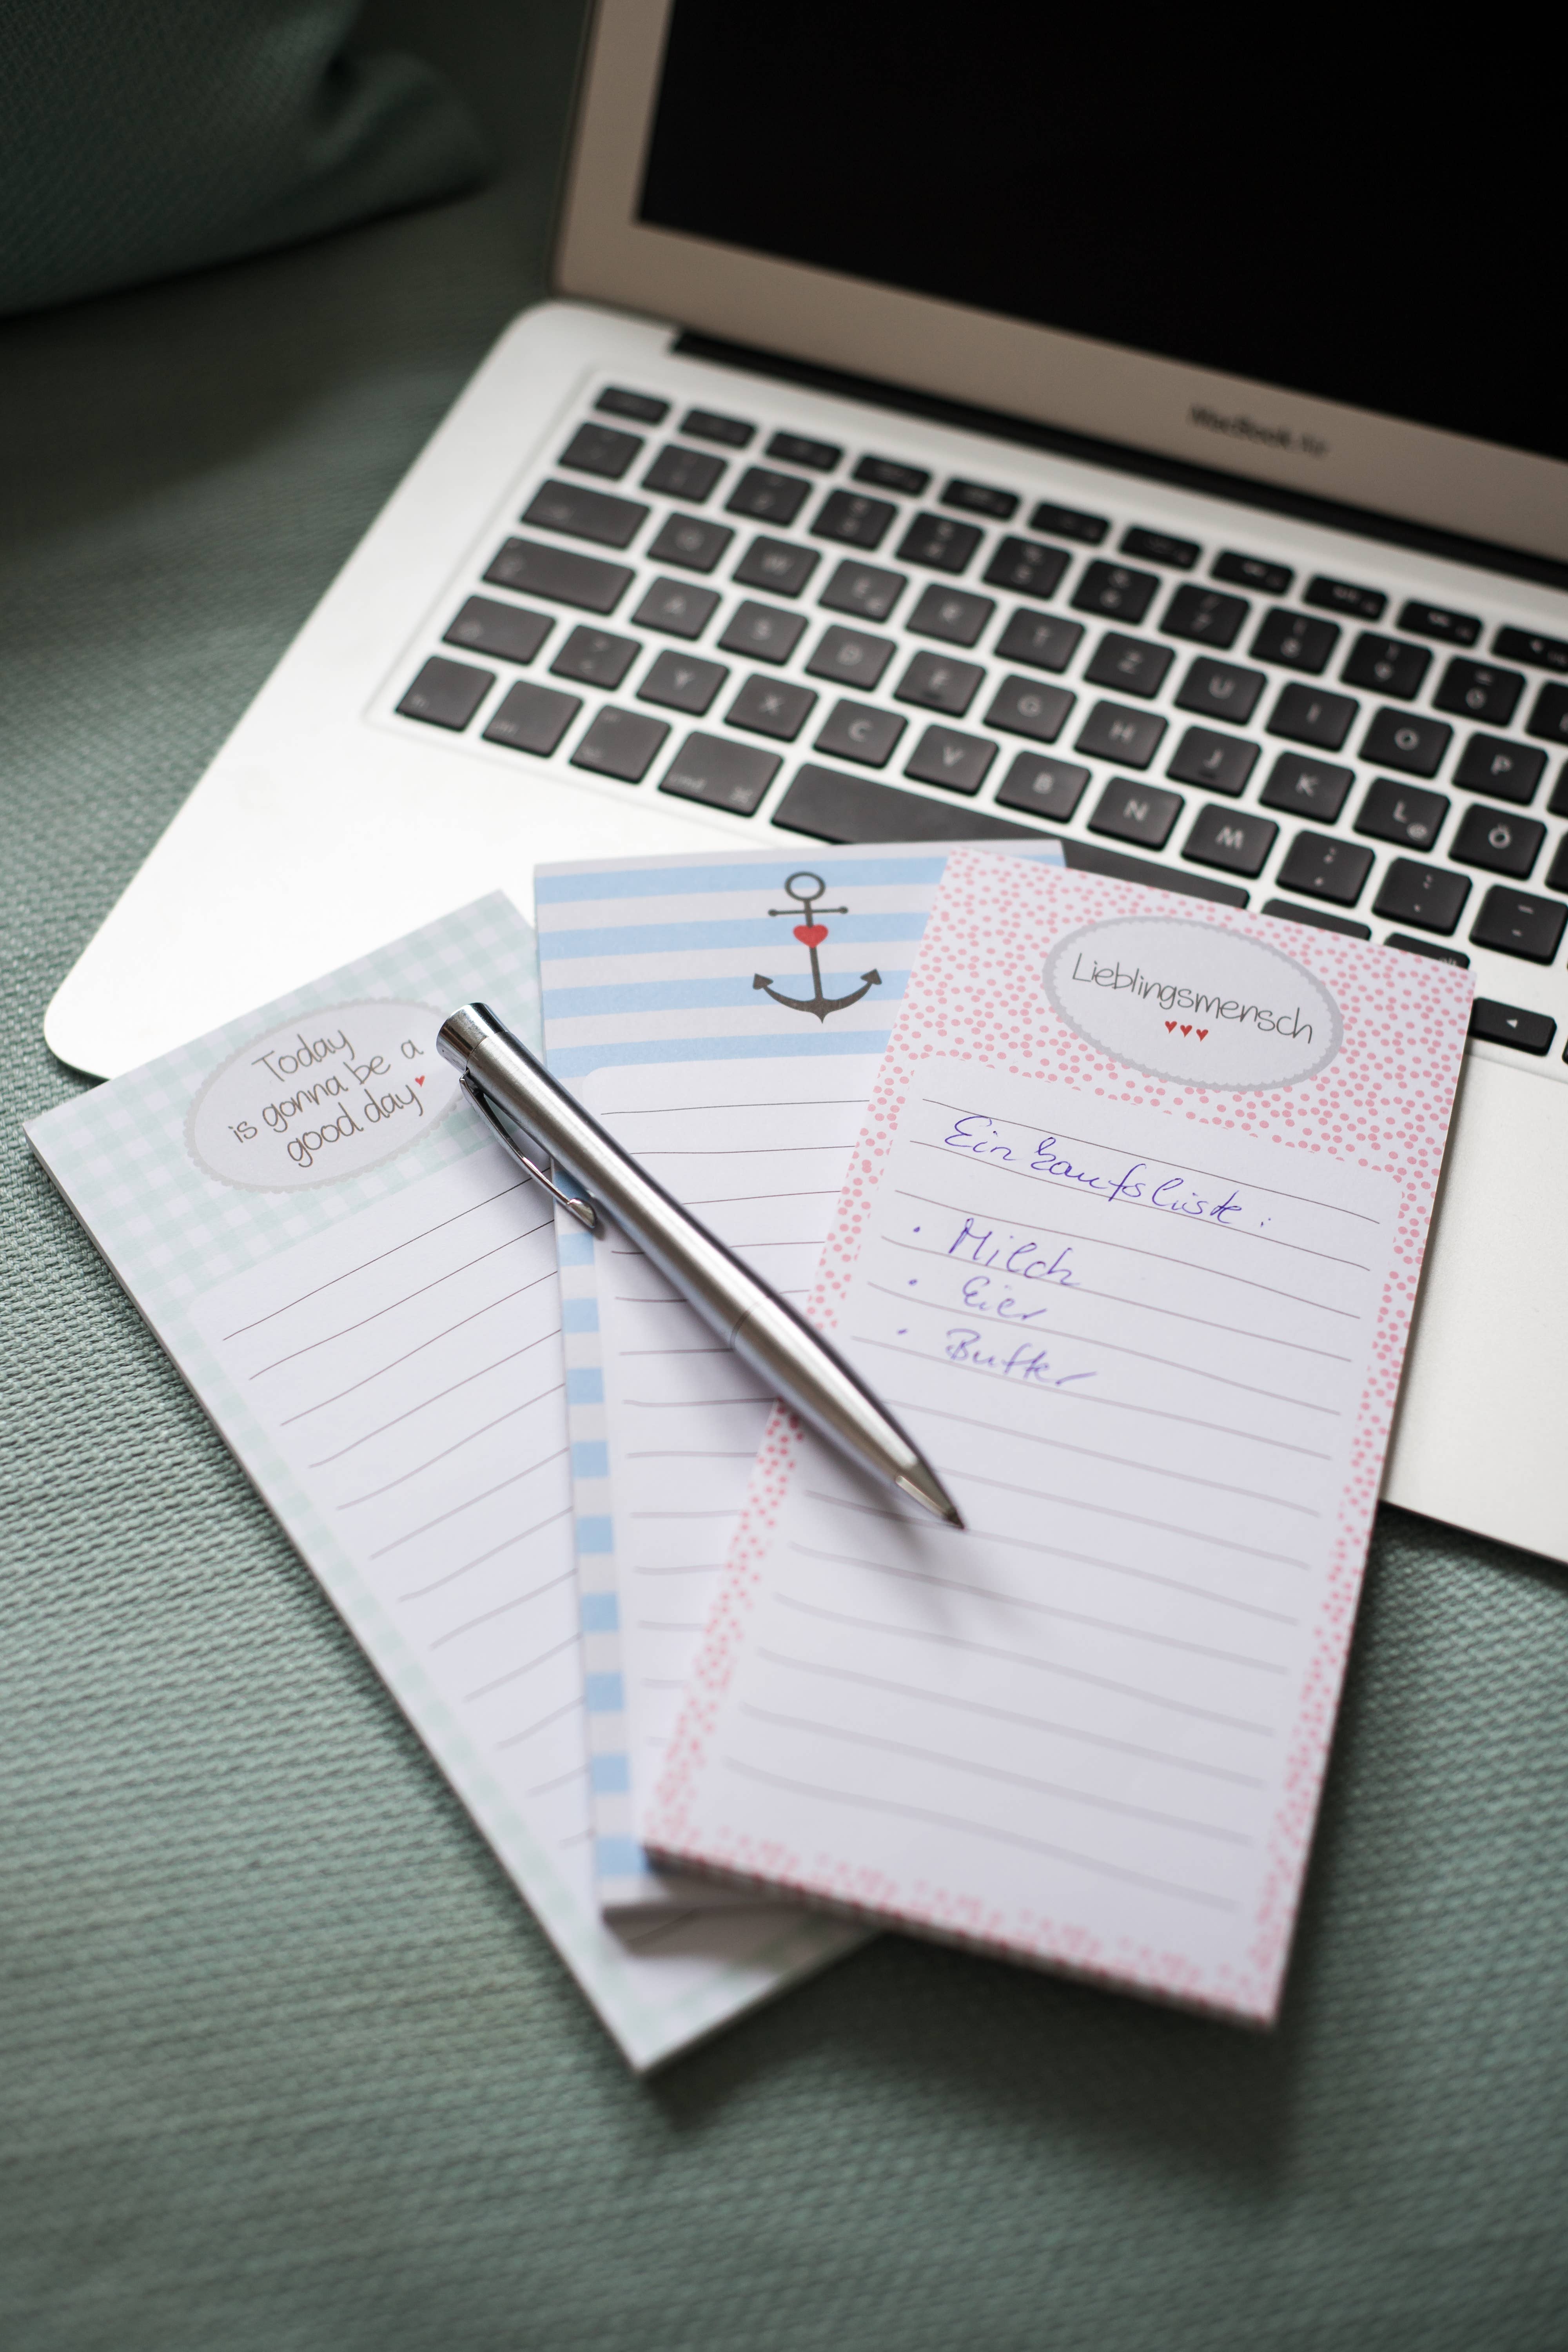 MacBook Air
Q W E R T Z U I O P
A S D F G H J K L Ö
Y X C V B N M
cmd ⌘
Today
is gonna be a
good day
Lieblingsmensch
Einkaufsliste:
• Milch
• Eier
• Butter